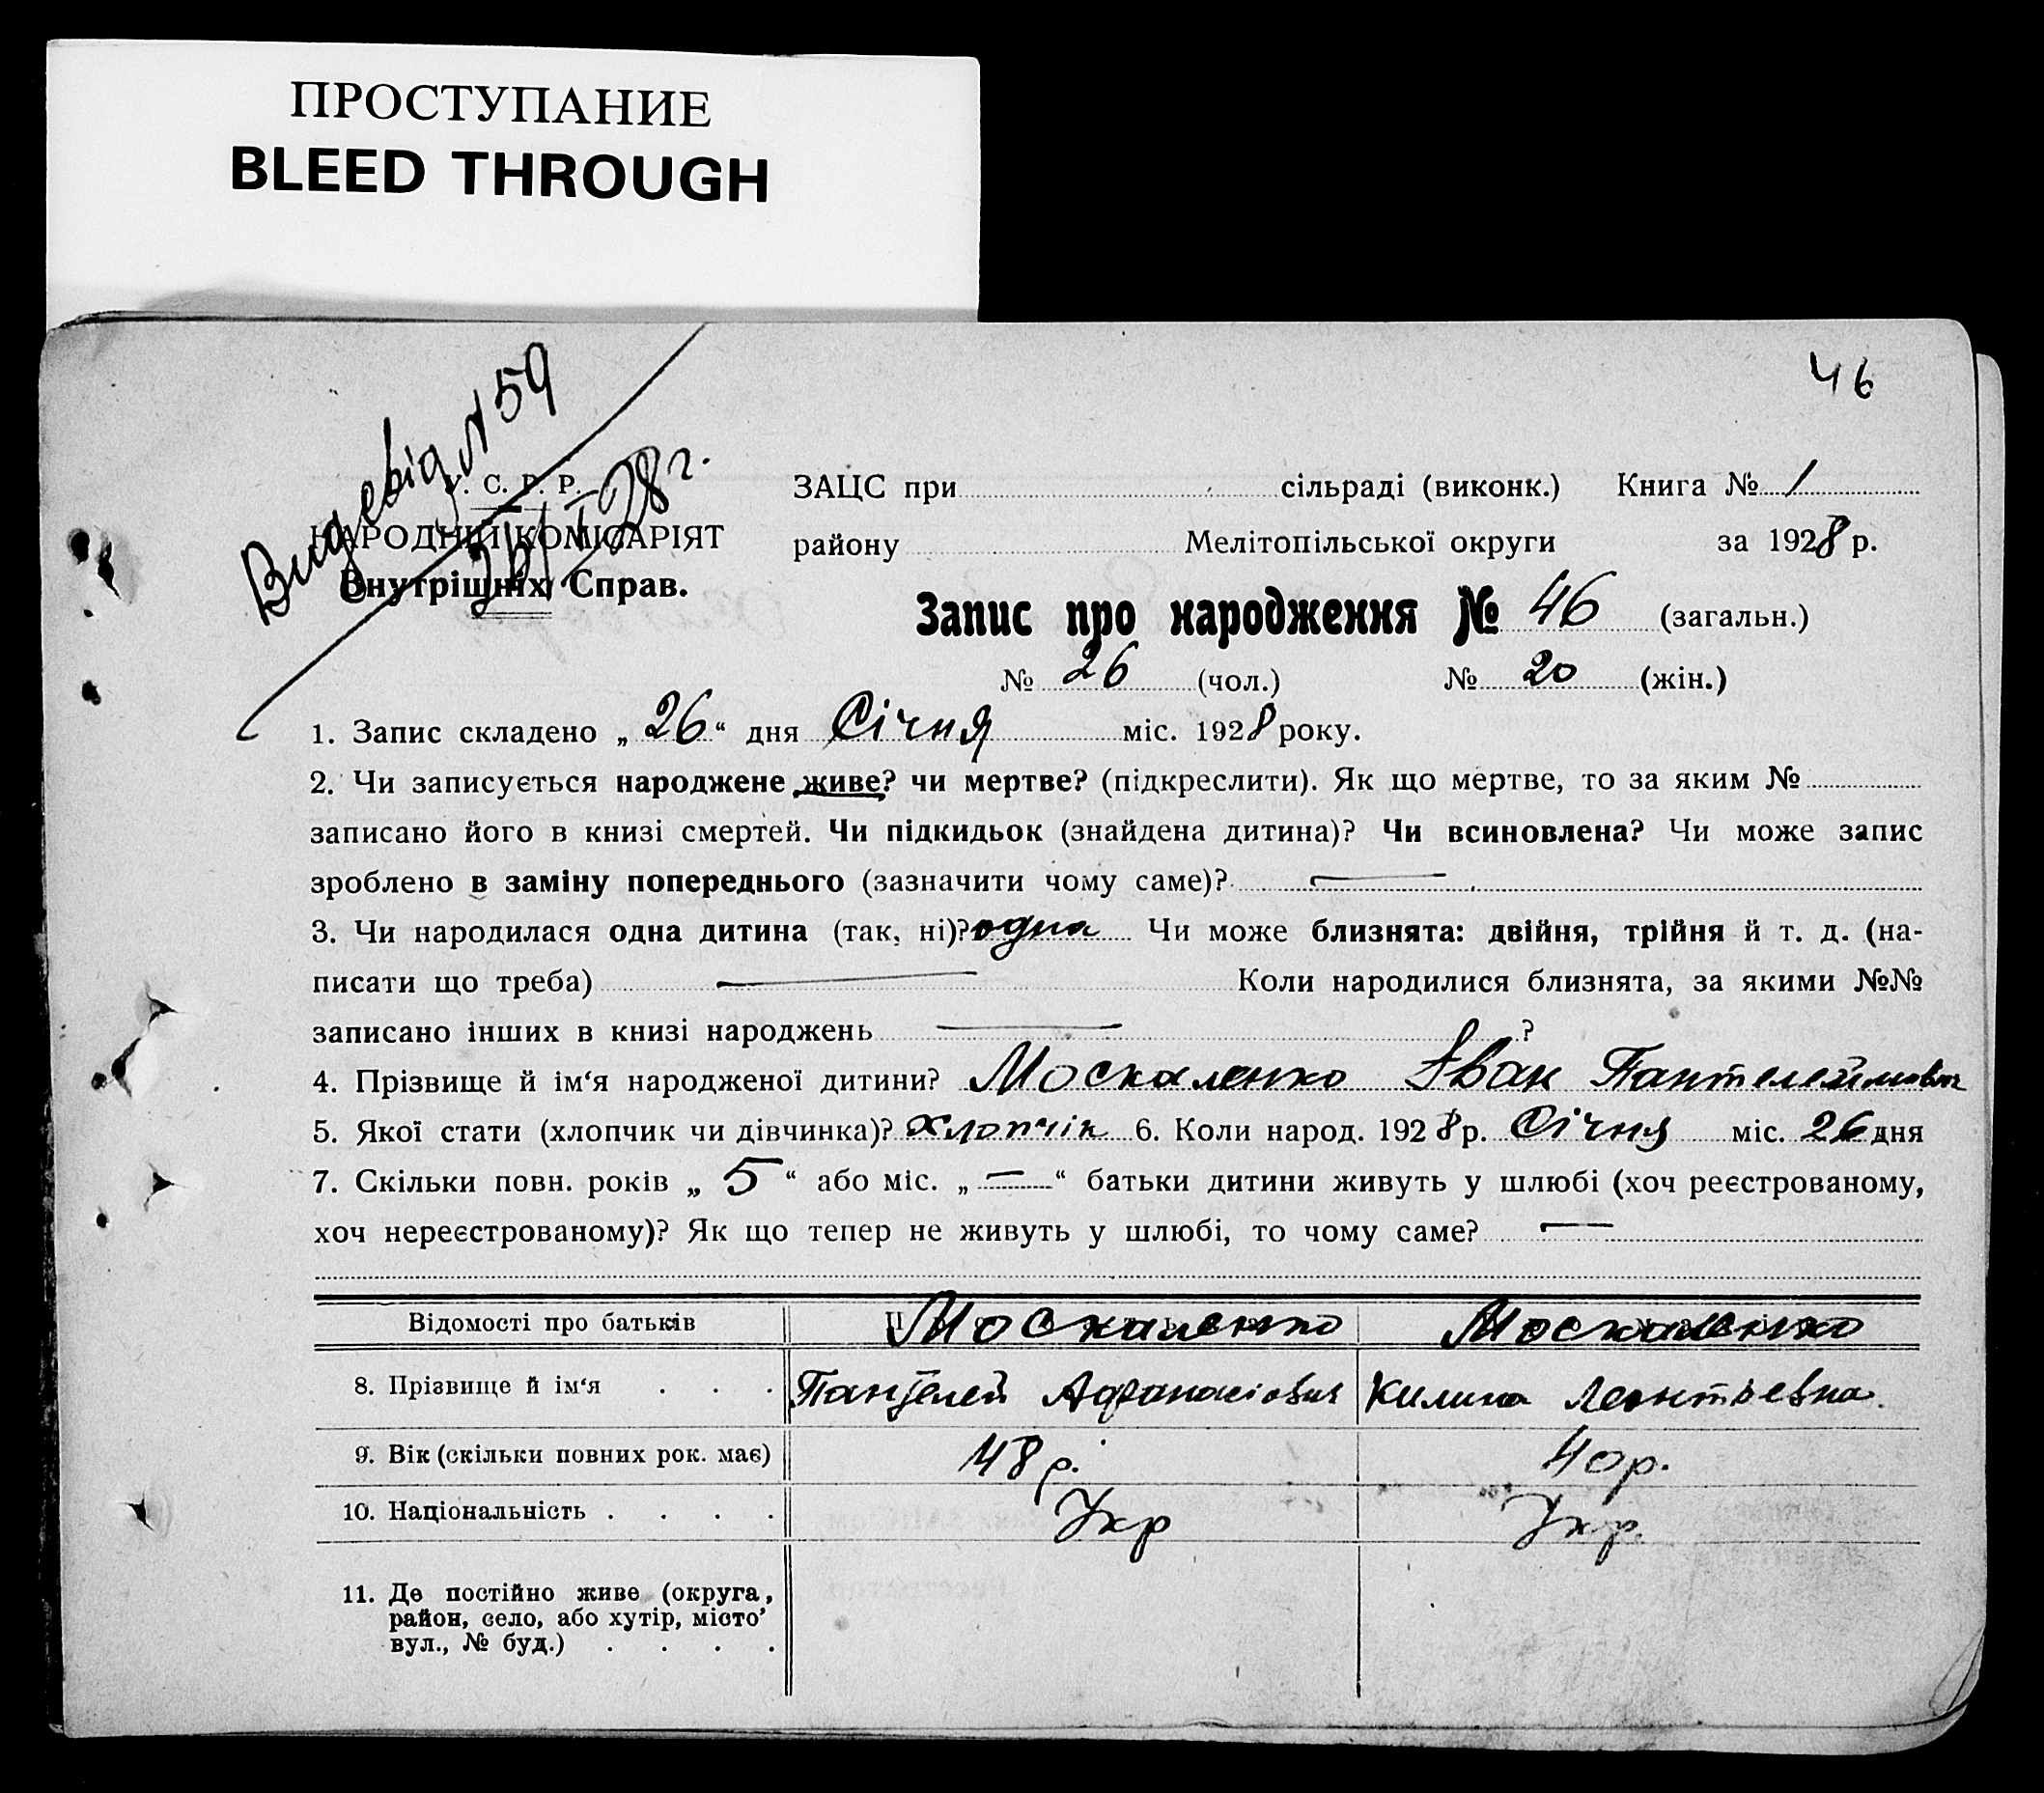 ПРОСТУПАНИЕ
BLEED THROUGH
46
Видевід N 59
26/I 28 г.
У. С. Р. Р.
НАРОДНИЙ КОМІСАРІЯТ
Внутрішніх Справ.
ЗАЦС при сільраді (виконк.) Книга № 1
району Мелітопільської округи за 1928 р.
Запис про народження № 46 (загальн.)
№ 26 (чол.) № 20 (жін.)
1. Запис складено „ 26 “ дня Січня міс. 1928 року.
2. Чи записується народжене живе? чи мертве? (підкреслити). Як що мертве, то за яким №
записано його в книзі смертей. Чи підкидьок (знайдена дитина)? Чи всиновлена? Чи може запис
зроблено в заміну попереднього (зазначити чому саме)? —
3. Чи народилася одна дитина (так, ні)? одна Чи може близнята: двійня, трійня й т. д. (на-
писати що треба) — Коли народилися близнята, за якими №№
записано інших в книзі народжень — ?
4. Прізвище й ім‘я народженої дитини? Москаленко Іван Пантелеймович
5. Якої стати (хлопчик чи дівчинка)? хлопчік 6. Коли народ. 1928 р. Січня міс. 26 дня
7. Скільки повн. років „ 5 “ або міс. „ — “ батьки дитини живуть у шлюбі (хоч реєстрованому,
хоч нереєстрованому)? Як що тепер не живуть у шлюбі, то чому саме? —
Відомості про батьків Москаленко Москаленко
8. Прізвище й ім‘я . . . Пантелей Афанасіович Килина Леонтьевна.
9. Вік (скільки повних рок. має) 48 р. 40 р.
10. Національність . . . . Укр Укр.
11. Де постійно живе (округа,
район, село, або хутір, місто’
вул., № буд.) . . . .